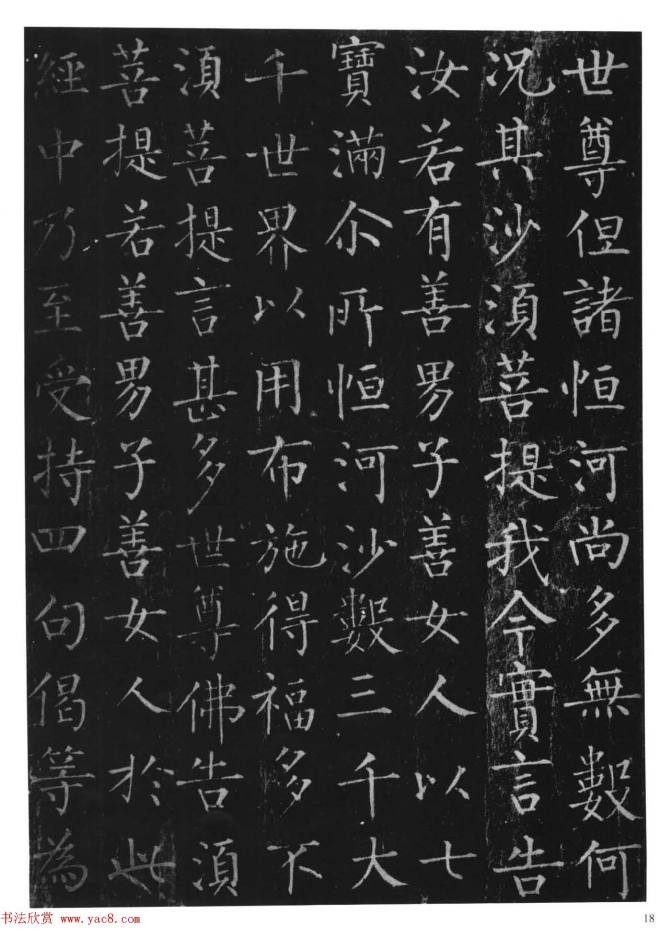 世尊但諸恒河尚多無數何
況其沙須菩提我今實言告
汝若有善男子善女人以七
寶滿尒所恒河沙數三千大
千世界以用布施得福多不
須菩提言甚多世尊佛告須
菩提若善男子善女人於此
經中乃至受持四句偈等為
书法欣赏 www.yac8.com
18